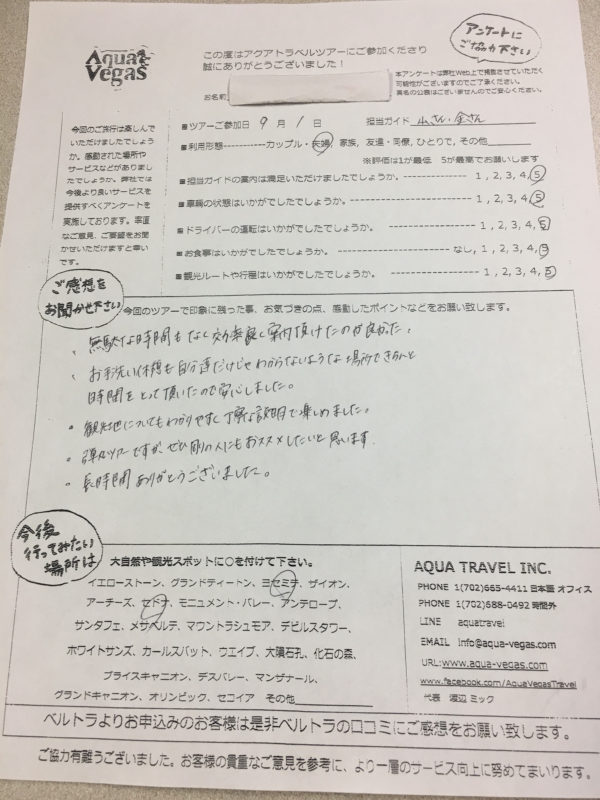 Aqua Vegas
この度はアクアトラベルツアーにご参加くださり
誠にありがとうございました！
アンケートに
ご協力下さい
本アンケートは弊社Web上で掲載させていただく
可能性がございますのでご了承ください。
実名の公表はございませんのでご安心ください。
お名前
今回のご旅行は楽しんで
いただけましたでしょう
か。感動された場所や
サービスなどがありまし
たでしょうか。弊社では
今後より良いサービスを
提供すべくアンケートを
実施しております。率直
なご意見、ご要望をお聞
かせいただけますと幸い
です。
■ツアーご参加日 9月 1日 担当ガイド 山さん・金さん
■利用形態-----------カップル・夫婦, 家族, 友達・同僚, ひとりで, その他
※評価は1が最低 5が最高でお願いします
■担当ガイドの案内は満足いただけましたでしょうか。 ---------------- 1 , 2, 3, 4, 5
■車輌の状態はいかがでしたでしょうか。 ---------------- 1 , 2, 3, 4, 5
■ドライバーの運転はいかがでしたでしょうか。 ---------------- 1 , 2, 3, 4, 5
■お食事はいかがでしたでしょうか。 ---------------- なし, 1, 2, 3, 4, 5
■観光ルートや行程はいかがでしたでしょうか。 ---------------- 1 , 2, 3, 4, 5
ご感想を
お聞かせ下さい
今回のツアーで印象に残った事、お気づきの点、感動したポイントなどをお願い致します。
・無駄な時間もなく効率良く案内頂けたのが良かった。
・お手洗い休憩も自分達だけじゃわからないような場所できちんと
時間をとって頂いたので安心しました。
・観光地についてもわかりやすく丁寧な説明で楽しめました。
・弾丸ツアーですが、ぜひ周りの人にもおススメしたいと思います。
・長時間ありがとうございました。
今後
行ってみたい
場所は
大自然や観光スポットに○を付けて下さい。
イエローストーン、グランドティートン、ヨセミテ、ザイオン、
アーチーズ、セドナ、モニュメント・バレー、アンテロープ、
サンタフェ、メサベルデ、マウントラシュモア、デビルスタワー、
ホワイトサンズ、カールスバット、ウエイブ、大隕石孔、化石の森、
ブライスキャニオン、デスバレー、マンザナール、
グランドキャニオン、オリンピック、セコイア その他
AQUA TRAVEL INC.
PHONE 1(702)665-4411 日本語 オフィス
PHONE 1(702)688-0492 時間外
LINE aquatravel
EMAIL info@aqua-vegas.com
URL:www.aqua-vegas.com
www.facebook.com/AquaVegasTravel
代表 渡辺 ミック
ベルトラよりお申込みのお客様は是非ベルトラの口コミにご感想をお願い致します。
ご協力有難うございました。お客様の貴重なご意見を参考に、より一層のサービス向上に努めてまいります。